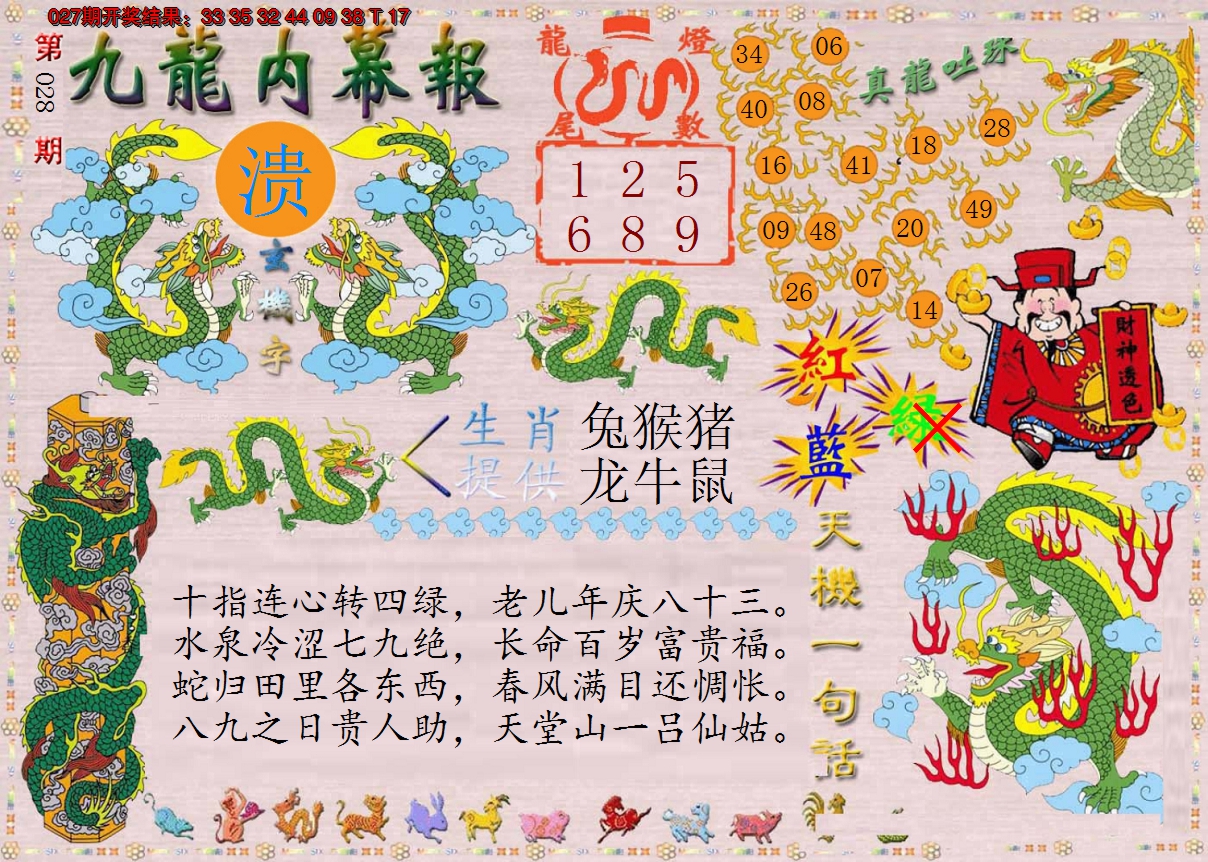 027期开奖结果：33 35 32 44 09 38 T 17
第
028
期
九龍内幕報
溃
玄
機
字
龍 燈
尾 數
1 2 5
6 8 9
真龍吐珠
34
06
40
08
28
18
16
41
49
09
48
20
07
26
14
紅
綠
藍
財神透色
生肖
提供
兔猴猪
龙牛鼠
天機一句話
十指连心转四绿，老儿年庆八十三。
水泉冷涩七九绝，长命百岁富贵福。
蛇归田里各东西，春风满目还惆怅。
八九之日贵人助，天堂山一吕仙姑。